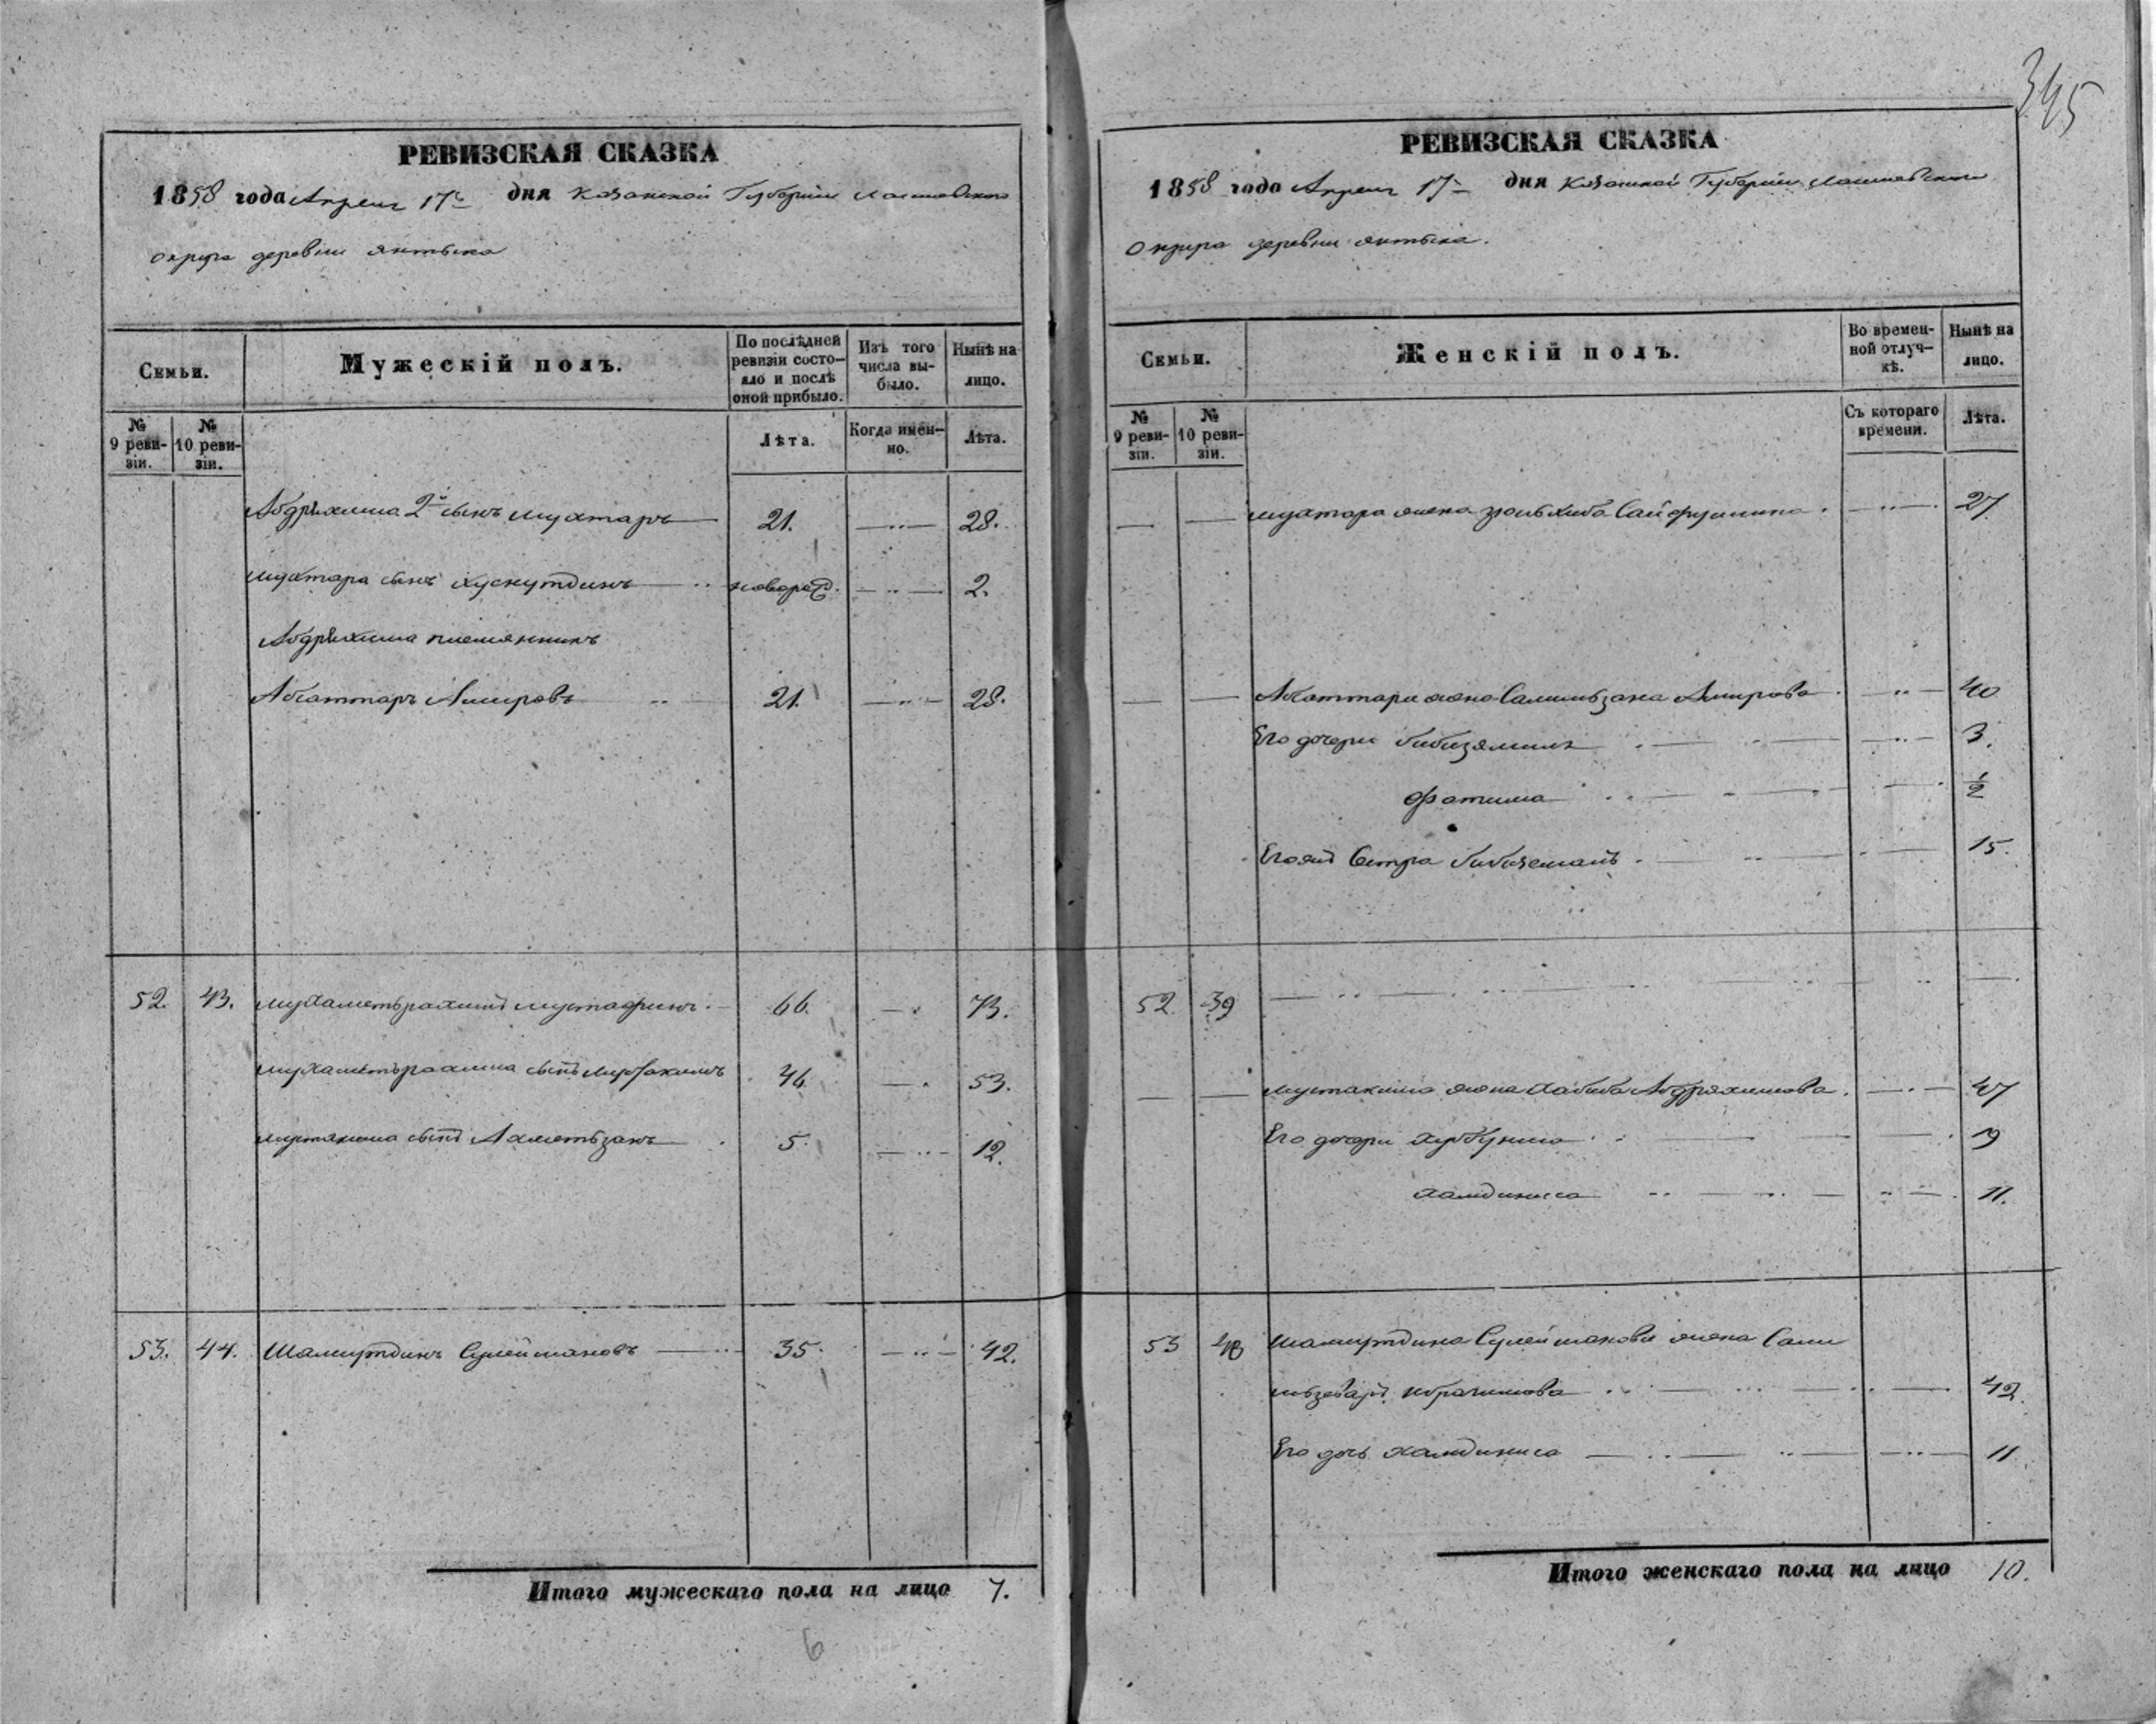 345
РЕВИЗСКАЯ СКАЗКА
1858 года Апреля 17го дня Казанской Губернiи Лаишевского
округа деревни Янтыка
Семьи.
Мужескiй полъ.
По послѣдней ревизiи состояло и послѣ оной прибыло.
Изъ того числа выбыло.
Нынѣ на лицо.
№ 9 ревизiи.
№ 10 ревизiи.
Лѣта.
Когда именно.
Лѣта.
Абдряхима 2й сынъ Мухтаръ 21. 28.
Мухтара сынъ Хуснутдинъ новорожд. 2.
Абдряхима племянникъ
Абсаттаръ Амировъ 21. 28.
52. 43. Мухаметьрахимъ Мустафинъ 66. 73.
Мухаметьрахима сынъ Мустакимъ 46. 53.
Мустакима сынъ Ахметьзянъ 5. 12.
53. 44. Шамшутдинъ Сулеймановъ 35. 42.
Итого мужескаго пола на лицо 7.
6
РЕВИЗСКАЯ СКАЗКА
1858 года Апреля 17го дня Казанской Губернiи Лаишевского
округа деревни Янтыка.
Семьи.
Женскiй полъ.
Во временной отлучкѣ.
Нынѣ на лицо.
№ 9 ревизiи.
№ 10 ревизiи.
Съ котораго времени.
Лѣта.
Мухтара жена Зюльхиба Сайфуллина 27
Абсаттара жена Салимьзяна Амирова 40
Его дочери Бибизямиля 3.
Фатима 1/2
Егожъ Сестра Бибижемалъ 15.
52. 39
Мустакима жена Хабиба Абдряхимова 47
Его дочери Хуббуниса 19
Хамдиниса 11.
53 40 Шамшутдина Сулейманова жена Сали
Ибрагимова 42.
Его дочь Хамдиниса 11
Итого женскаго пола на лицо 10.